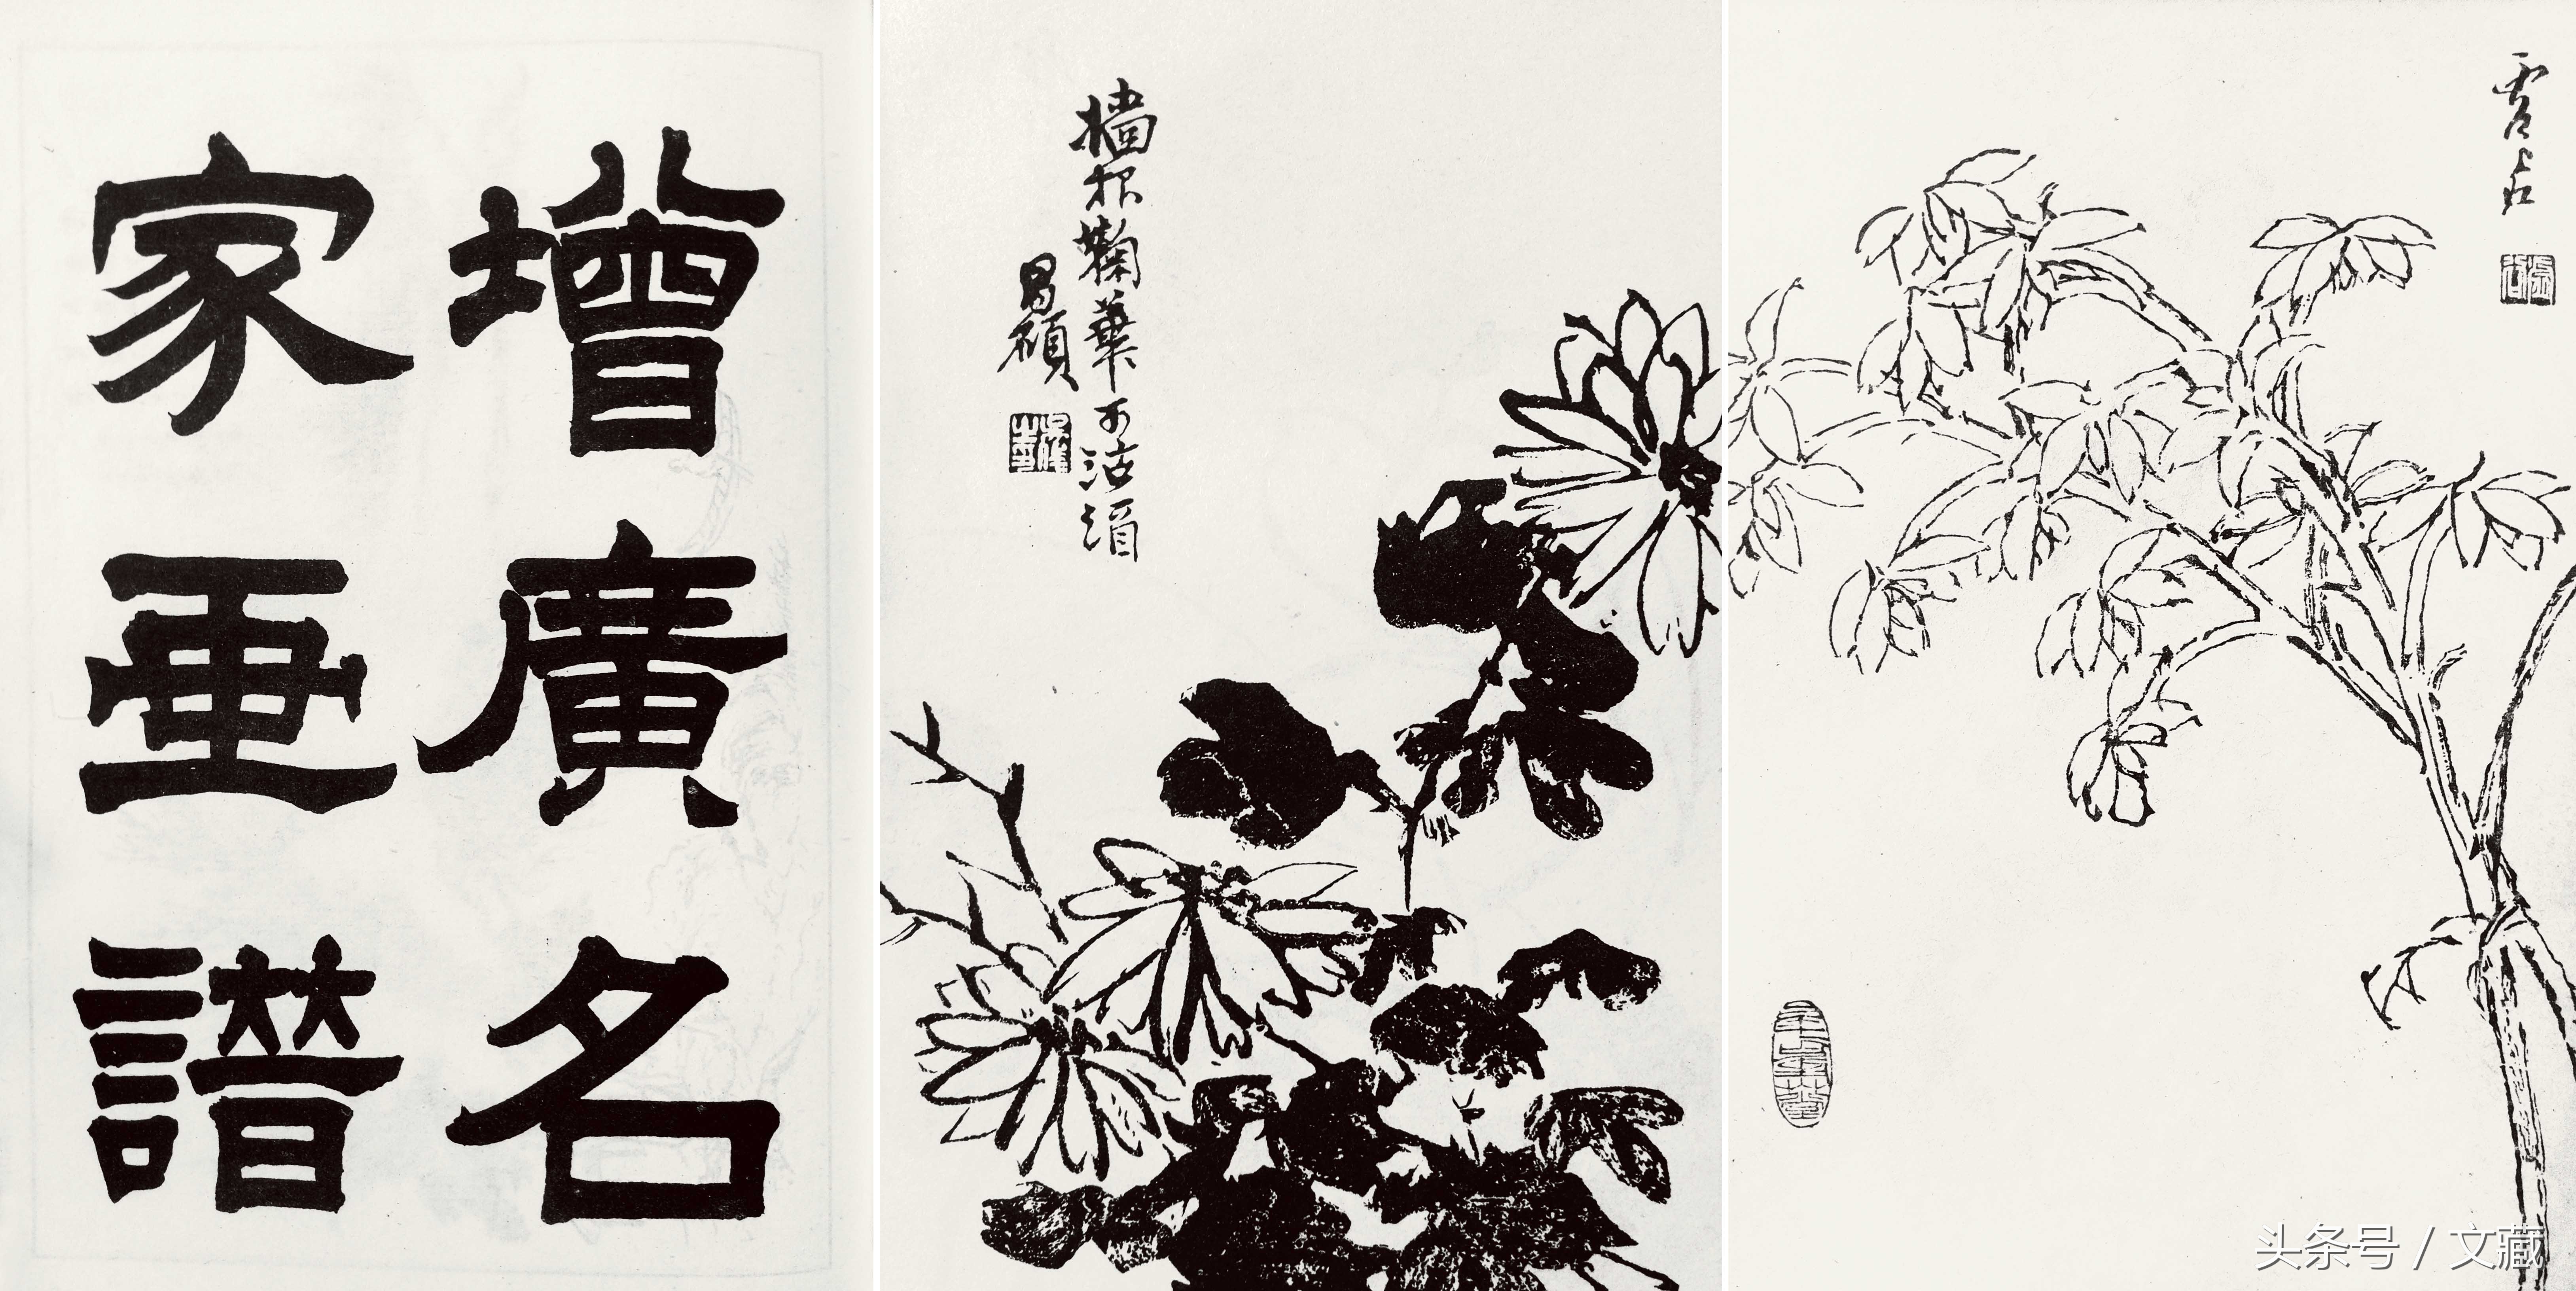 增廣名
家畫譜
牆根鞠華可沽酒
昌碩
虛谷
头条号 / 文藏